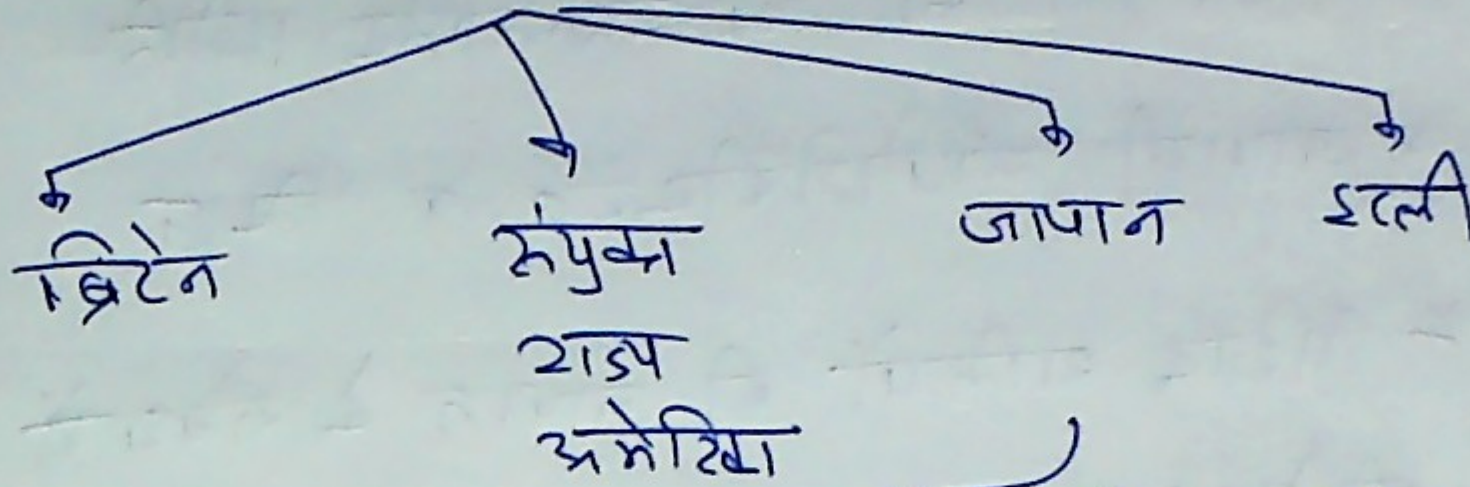 ब्रिटेन
संयुक्त
राज्य
अमेरिका
जापान
इटली